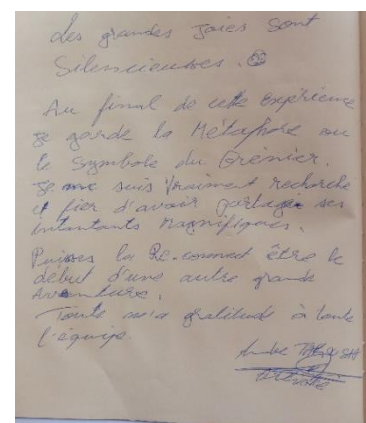 Les grandes joies sont
Silencieuses. ☹
Au final de cette expérience
Je garde la Métaphore ou
le symbole du Grénier.
Je me suis vraiment recherché
et fier d'avoir partagé ses
intantants magnifiques.
Puisses la Re-connect être le
début d'une autre grande
Aventure.
Toute ma gratitude à toute
l'équipe.
André